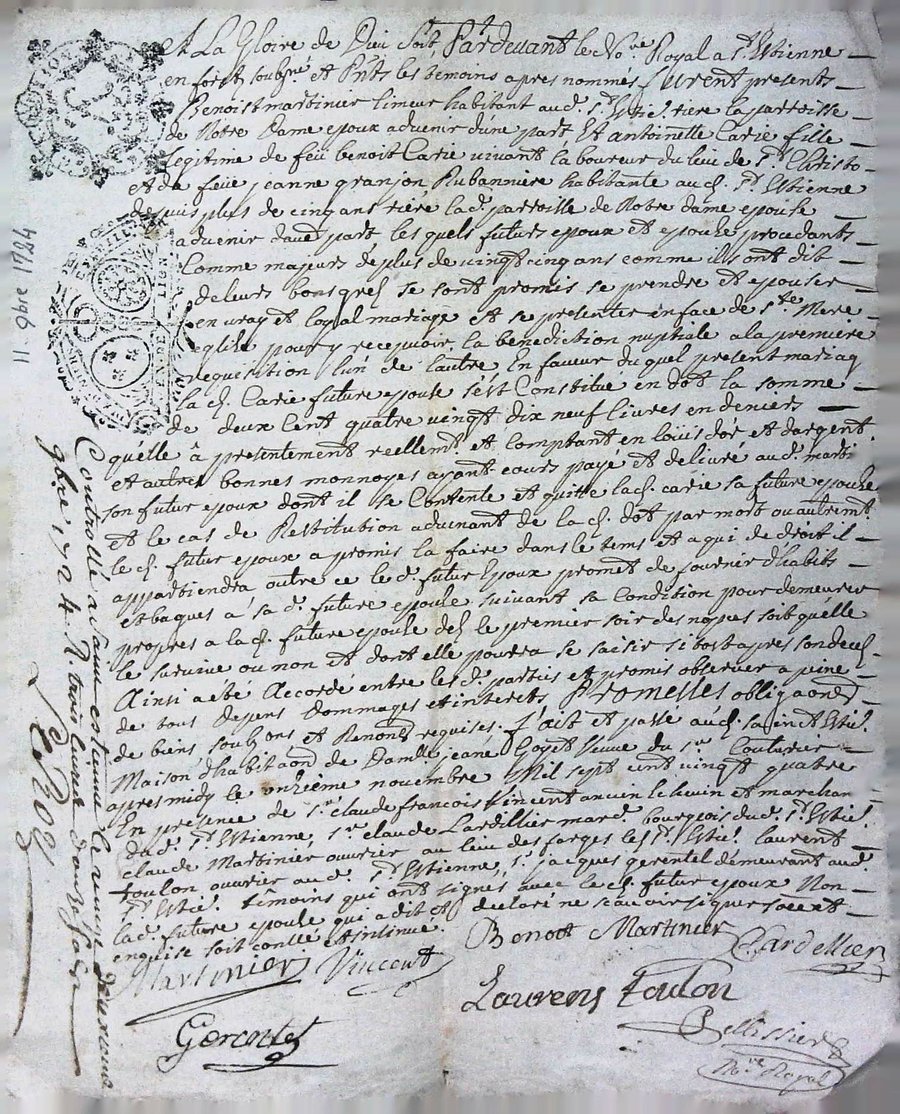 A La Gloire de Dieu Soit, Pardevant le No.re Royal a St. Estienne
en forest soubsné et Pnts les temoins apres nommés furent presents
Benoist martinier limeur habitant aud. St. Esti.e riere la parroisse
de Nostre Dame epoux advenir d'une part Et antoinette Carie fille
Legitime de feü benoit Carie vivant laboureur du lieu de St. Christo
et de feüe jeanne granjon Rubanniere habitante aud. St. Estienne
depuis plus de cinq ans riere lad. parroisse de Nostre dame epouse
advenir dautre part les quels futurs epoux et epouse procedants
Comme majeurs de plus de vingt cinq ans comme ils ont dit
de leurs bons grés se sont promis se prendre et epouser
en vray et loyal mariage et se presenter en face de Ste. Mere
eglise pour y recepvoir la benediction nuptiale a la premiere
requisition l'un de lautre En faveur du quel present mariag
la d. Carie future epouse s'est Constitué en dot la somme
de deux Cent quatre vingt dix neuf livres en deniers
quelle à presentement reellemt. et comptant en loüis dor et dargent
et autres bonnes monnoyes ayant cours payé et delivré aud. marti
son futur epoux dont il se Contente et quitte lad. carie sa future epouse
et le cas de Restitution advenant de la d. dot par mort ou autremt.
le d. futur epoux a promis la faire dans le tems et a qui de droit il
appartiendra outre ce le d. futur Epoux promet de fournir d'habits
et bagues a sa d. future epouse suivant sa Condition pour demeurer
propres a la d. future epouse des le premier soir des nopces soit quelle
le survive ou non et dont elle pourra se saisir si tost apres son deced.
Ainsi a eté Accordé entre les d. parties et promis observer a peine
de tous depens dommages et interets Promesses obligaons
de biens soubs ons et Renons requises. fait et passé aud. sainct Esti.
Maison d'habitaon de Dam.lle jeane Loyet veuve du sr. Couturier
apres midy le onzieme novembre Mil sept cent vingt quatre
En presence de sr. claude francois Vincent ancien Echevin et marchan
dud. St. Estienne, sr. claude Lardillier mard. bourgeois dud. St. Esti.
claude Martinier ouvrier au lieu des forges les St. Esti. laurent
toulon ouvrier aud. St. Estienne, sr. jacques gerentet demeurant aud.
St. Esti. témoins qui ont signés avec le d. futur epoux Non
lad. future epouse qui a dit et declaré ne scavoir signer de ce
enquise soit contlé et insinué.
Benoit Martinier
Lardellier
Martinier Vincent
Laurens Toulon
Gerentet
Pellissier
No.re Royal
11. 9bre 1724
Controllé a saint estienne le onze
9bre 1724 R. trois livres
Leroy